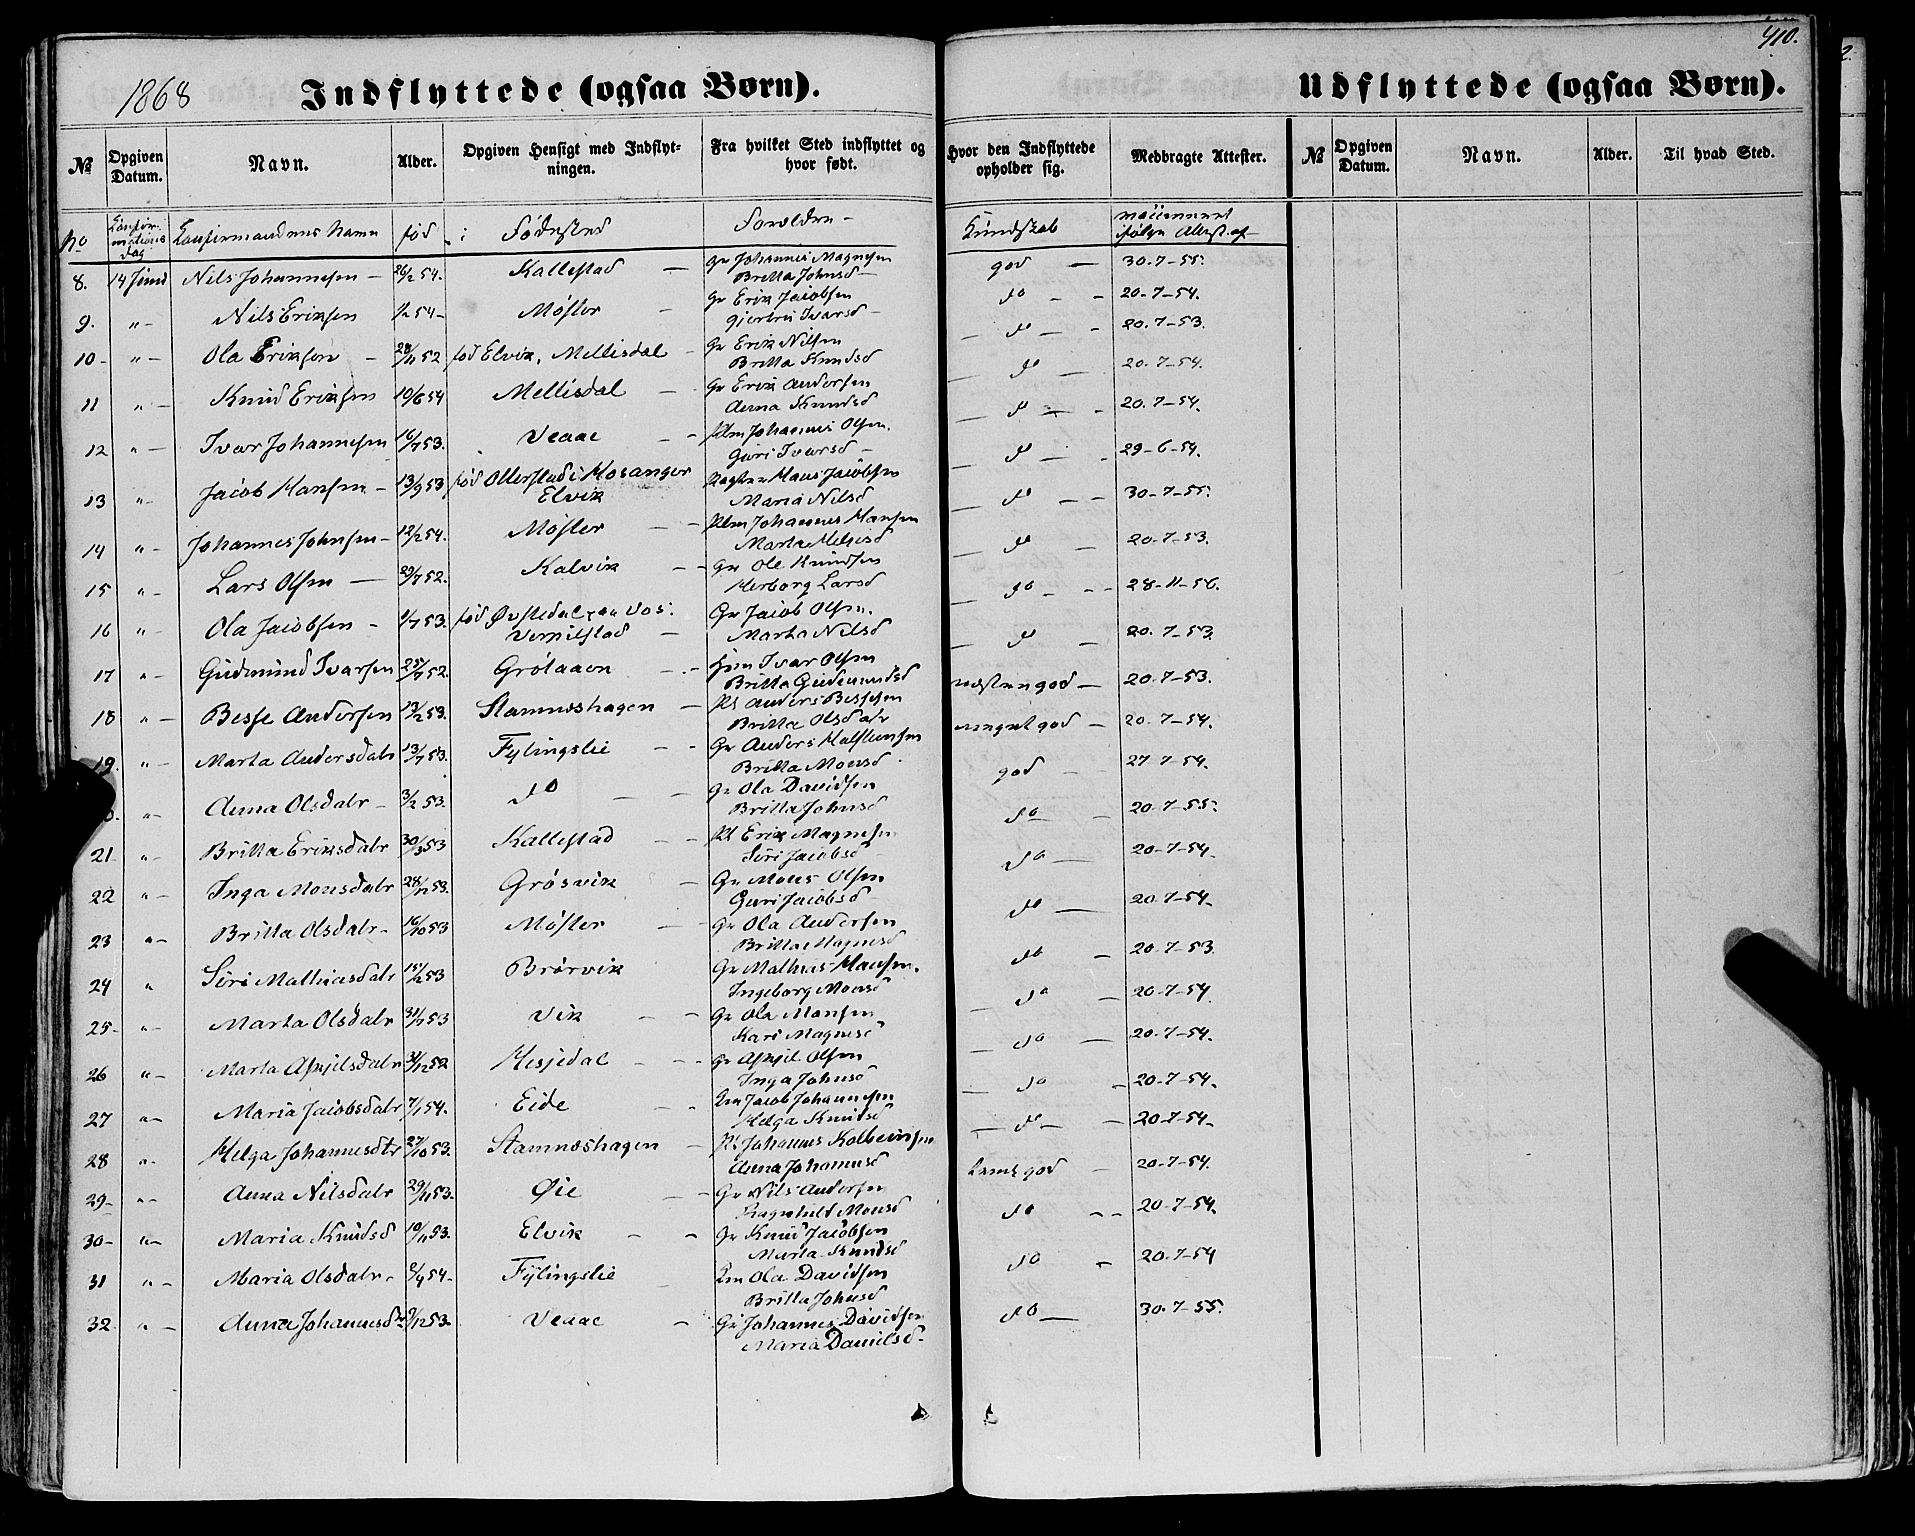 410.
1868 Indflyttede (ogsaa Børn). Udflyttede (ogsaa Børn).
№ Opgiven Datum. Navn. Alder. Opgiven Hensigt med Indflytningen. Fra hvilket Sted indflyttet og hvor født. Hvor den Indflyttede opholder sig. Medbragte Attester. № Opgiven Datum. Navn. Alder. Til hvad Sted.
No Confirmations dag Confirmandens Navn fød i Fødested Forældre Kundskab vaccineret ifølge Attest af
8. 14 Juni Nils Johannesen 26/2 54. Kallestad Gr Johannes Magnesen god 30-7-55.
Britta Johnsd
9. " Nils Eriksen 1/2 54 Møster Gr Erik Jacobsen do 20-7-54.
Gjertrud Ivarsd
10 " Ola Eriksen 28/11 52 fød Elvik, Mellisdal Gr Erik Nilsen do 20.7-53.
Britta Knudsd
11 " Knud Eriksen 10/6 54 Mellisdal Gr Erik Andersen do 20.7-54.
Anna Knudsd
12 " Ivar Johannesen 16/7 53. Veaae Plm Johannes Olsen. do 20.7-54.
Guri Ivarsd
13 " Jacob Hansen 13/9 53 fød Otterstad i Mosanger Hans Jacobsen do 29-6-54.
Elvik Maria Nilsd
14 " Johannes Johnsen 12/2 54. Møster Plm Johannes Hansen do 30-7-55.
Marta
15 " Lars Olsen 29/7 52. Kalvik Gr Ole Knudsen do 20-7-53.
Herborg Larsd
16 " Ola Jacobsen 1/7 53. fød Øvstedal paa Vos. Gr Jacob Olsen. do 28-11-56.
Vernilstad Marta Nilsd
17 " Gudmund Ivarsen 25/7 52. Grøtaaen Hm Ivar Olsen do 20.7-53.
Britta Gudmundsd
18 " Besse Andersen 13/2 53. Stamneshagen Pl Anders Bessesen næsten god 20-7-53.
Britta Olsdatr
19. " Marta Andersdatr 13/7 53. Fylingslie Gr Anders Halstensen meget god 20-7-54.
Britta Monsd
" Anna Olsdatr 3/2 53. do Gr Ola Davidsen god 27 7-54.
Britta Johnsd
21 " Britta Eriksdatr 30/3 53 Kallestad Pl Erik Magnesen do 20-7-55.
Siri Jacobsd
22 " Inga Monsdatr 28/12 53. Grøsvik Gr Mons Olsen do 20-7-54.
Guri Jacobsd
23 " Britta Olsdatr 16/10 53 Møster Gr Ola Andersen do 20.7-54.
Britta Magnesd
24 " Siri Mathiasdatr 15/12 53 Brørvik Gr Mathias Hansen. do 20-7-53
Ingeborg Monsd
25 " Marta Olsdatr 31/7 53 Vik Gr Ola Monsen do 20-7-54
Kari Magnesd
26 " Marta Askjilsdatr 31/12 52 Hesjedal Gr Askjil Olsen do 20-7-54.
Inga Johnsd
27 " Maria Jacobsdatr 7/1 54. Eide Em Jacob Johannesen do 20-7-54.
Helga Knudsd
28 " Helga Johannesdtr 27/10 53. Stamneshagen Pl Johannes Kolbeinsen do 20-7-54.
Anna Johannesd
29 " Anna Nilsdatr 29/11 53. Øie Gr Nils Andersen god 20-7-54.
Ragnhild Monsd
30 " Maria Knudsd 10/11 53. Elvik Gr Knud Jacobsen do 20-7-54.
Marta Knudsd
31 " Maria Olsdatr 54 Fylingslie Em Ola Davidsen do 20.7-54
Britta Johnsd
32 " Anna Johannesd 12 53 Veaae Gr Johannes Davidsen do 30.7-55.
Maria Danielsd